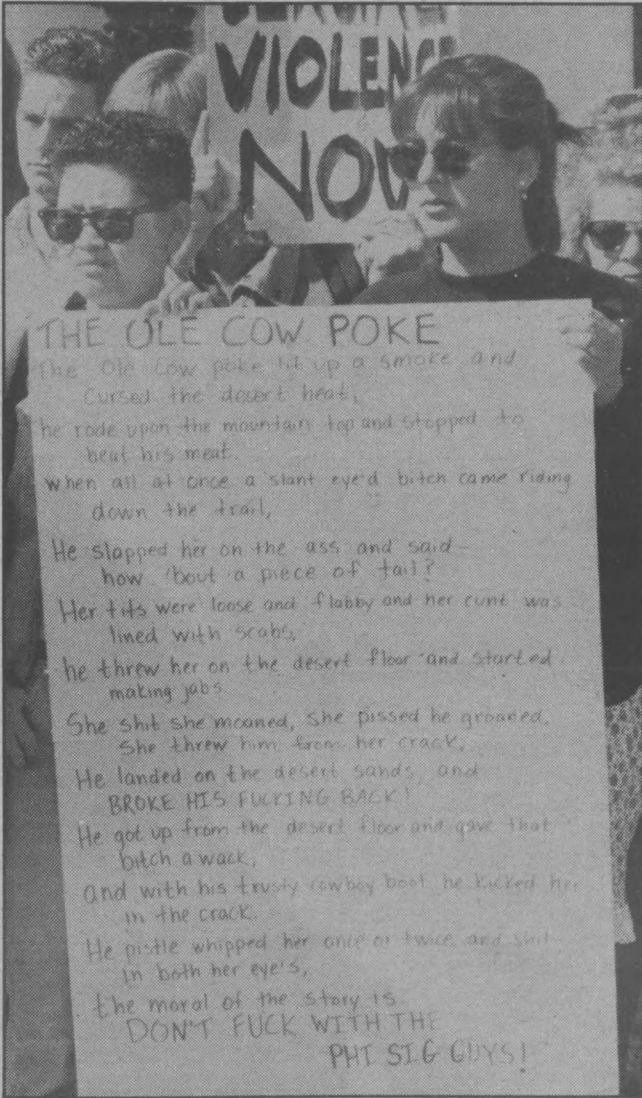 VIOLENCE
NOW
THE OLE COW POKE
The Ole Cow poke lit up a smoke and
Cursed the desert heat,
he rode upon the mountain top and stopped to
beat his meat.
when all at once a slant eye'd bitch came riding
down the trail,
He slapped her on the ass and said-
how 'bout a piece of tail?
Her tits were loose and flabby and her cunt was
lined with scabs,
he threw her on the desert floor and started
making jabs.
She shit she moaned, she pissed he groaned,
She threw him from her crack,
He landed on the desert sands, and
BROKE HIS FUCKING BACK!
He got up from the desert floor and gave that
bitch a wack,
and with his trusty cowboy boot he kicked her
in the crack.
He pistle whipped her once or twice and shit
in both her eye's,
the moral of the story is
DON'T FUCK WITH THE
PHI SIG GUYS!